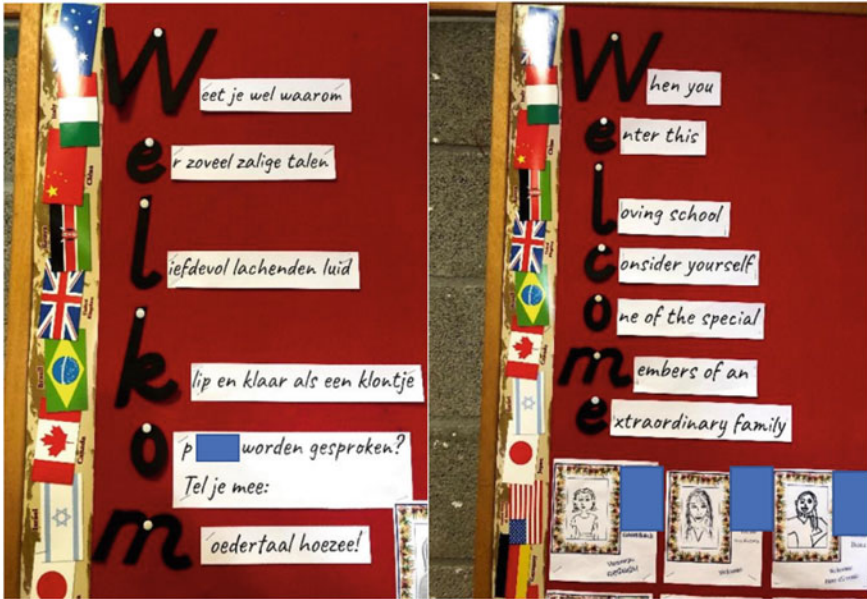 Weet je wel waarom
er zoveel zalige talen
liefdevol lachenden luid
klip en klaar als een klontje
op worden gesproken?
Tel je mee:
moedertaal hoezee!
When you
enter this
loving school
consider yourself
one of the special
members of an
extraordinary family